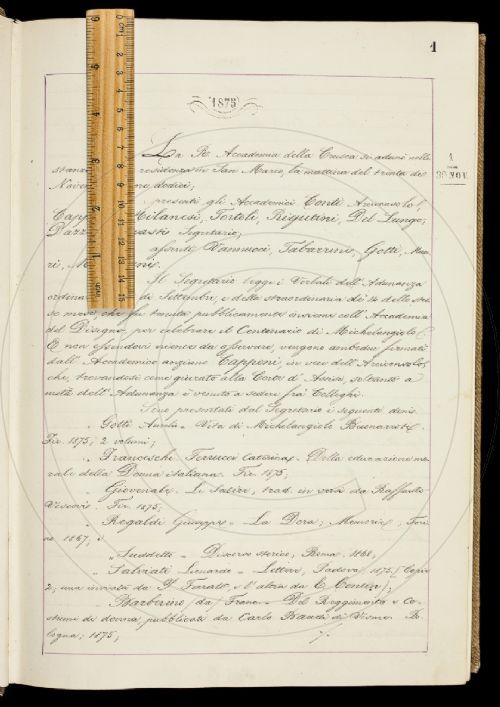 1
1875
La R. Accademia della Crusca si adunò nella
stanza residenza in San Marco la mattina del trenta di
Novem ore dodici;
presenti gli Accademici Conti Arciconsolo
Capp Milanesi, Tortoli, Rigutini, Del Lungo,
Dazzi Segretario;
assenti Vannucci, Tabarrini, Gotti,
ri,
1
30 NOV.
Il Segretario legge i Verbali dell'Adunanza
ordinaria di Settembre, e della straordinaria de' 14 dello stes
so mese, che fu tenuta pubblicamente insieme coll'Accademia
del Disegno, per celebrare il Centenario di Michelangiolo.
E non essendovi niente da osservare, vengono ambedue firmati
dall'Accademico anziano Capponi, in vece dell'Arciconsolo,
che, trovandosi come giurato alla Corte d'Assise, soltanto a
metà dell'Adunanza è venuto a sedere fra' Colleghi.
Sono presentati dal Segretario i seguenti doni:
" Gotti Aurelio - Vita di Michelangiolo Buonarroti.
Fir. 1875, 2 volumi;
" Franceschi Ferrucci Caterina - Della educazione mo
rale della Donna italiana. Fir. 1875;
" Giovenale - Le Satire, trad. in versi da Raffaello
Vescovi. Fir. 1875;
" Regaldi Giuseppe - La Dora, Memorie, Tori
no 1867, e
" Suddetto - Discorso storico, Roma, 1868,
" Salviati Lionardo - Lettere, Padova 1875 (Copie
2, una inviata da F. Turatti, e l'altra da E. Conter);
" Barberino (da) Franc. - Del Reggimento e Co-
stumi di donna, pubblicata da Carlo Baudi di Vesme. Bo
logna, 1875;